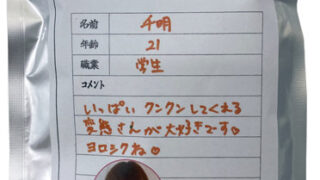 名前 千明
年齢 21
職業 学生
コメント
いっぱいクンクンしてくれる
変態さんが大好きです♡
ヨロシクね♡